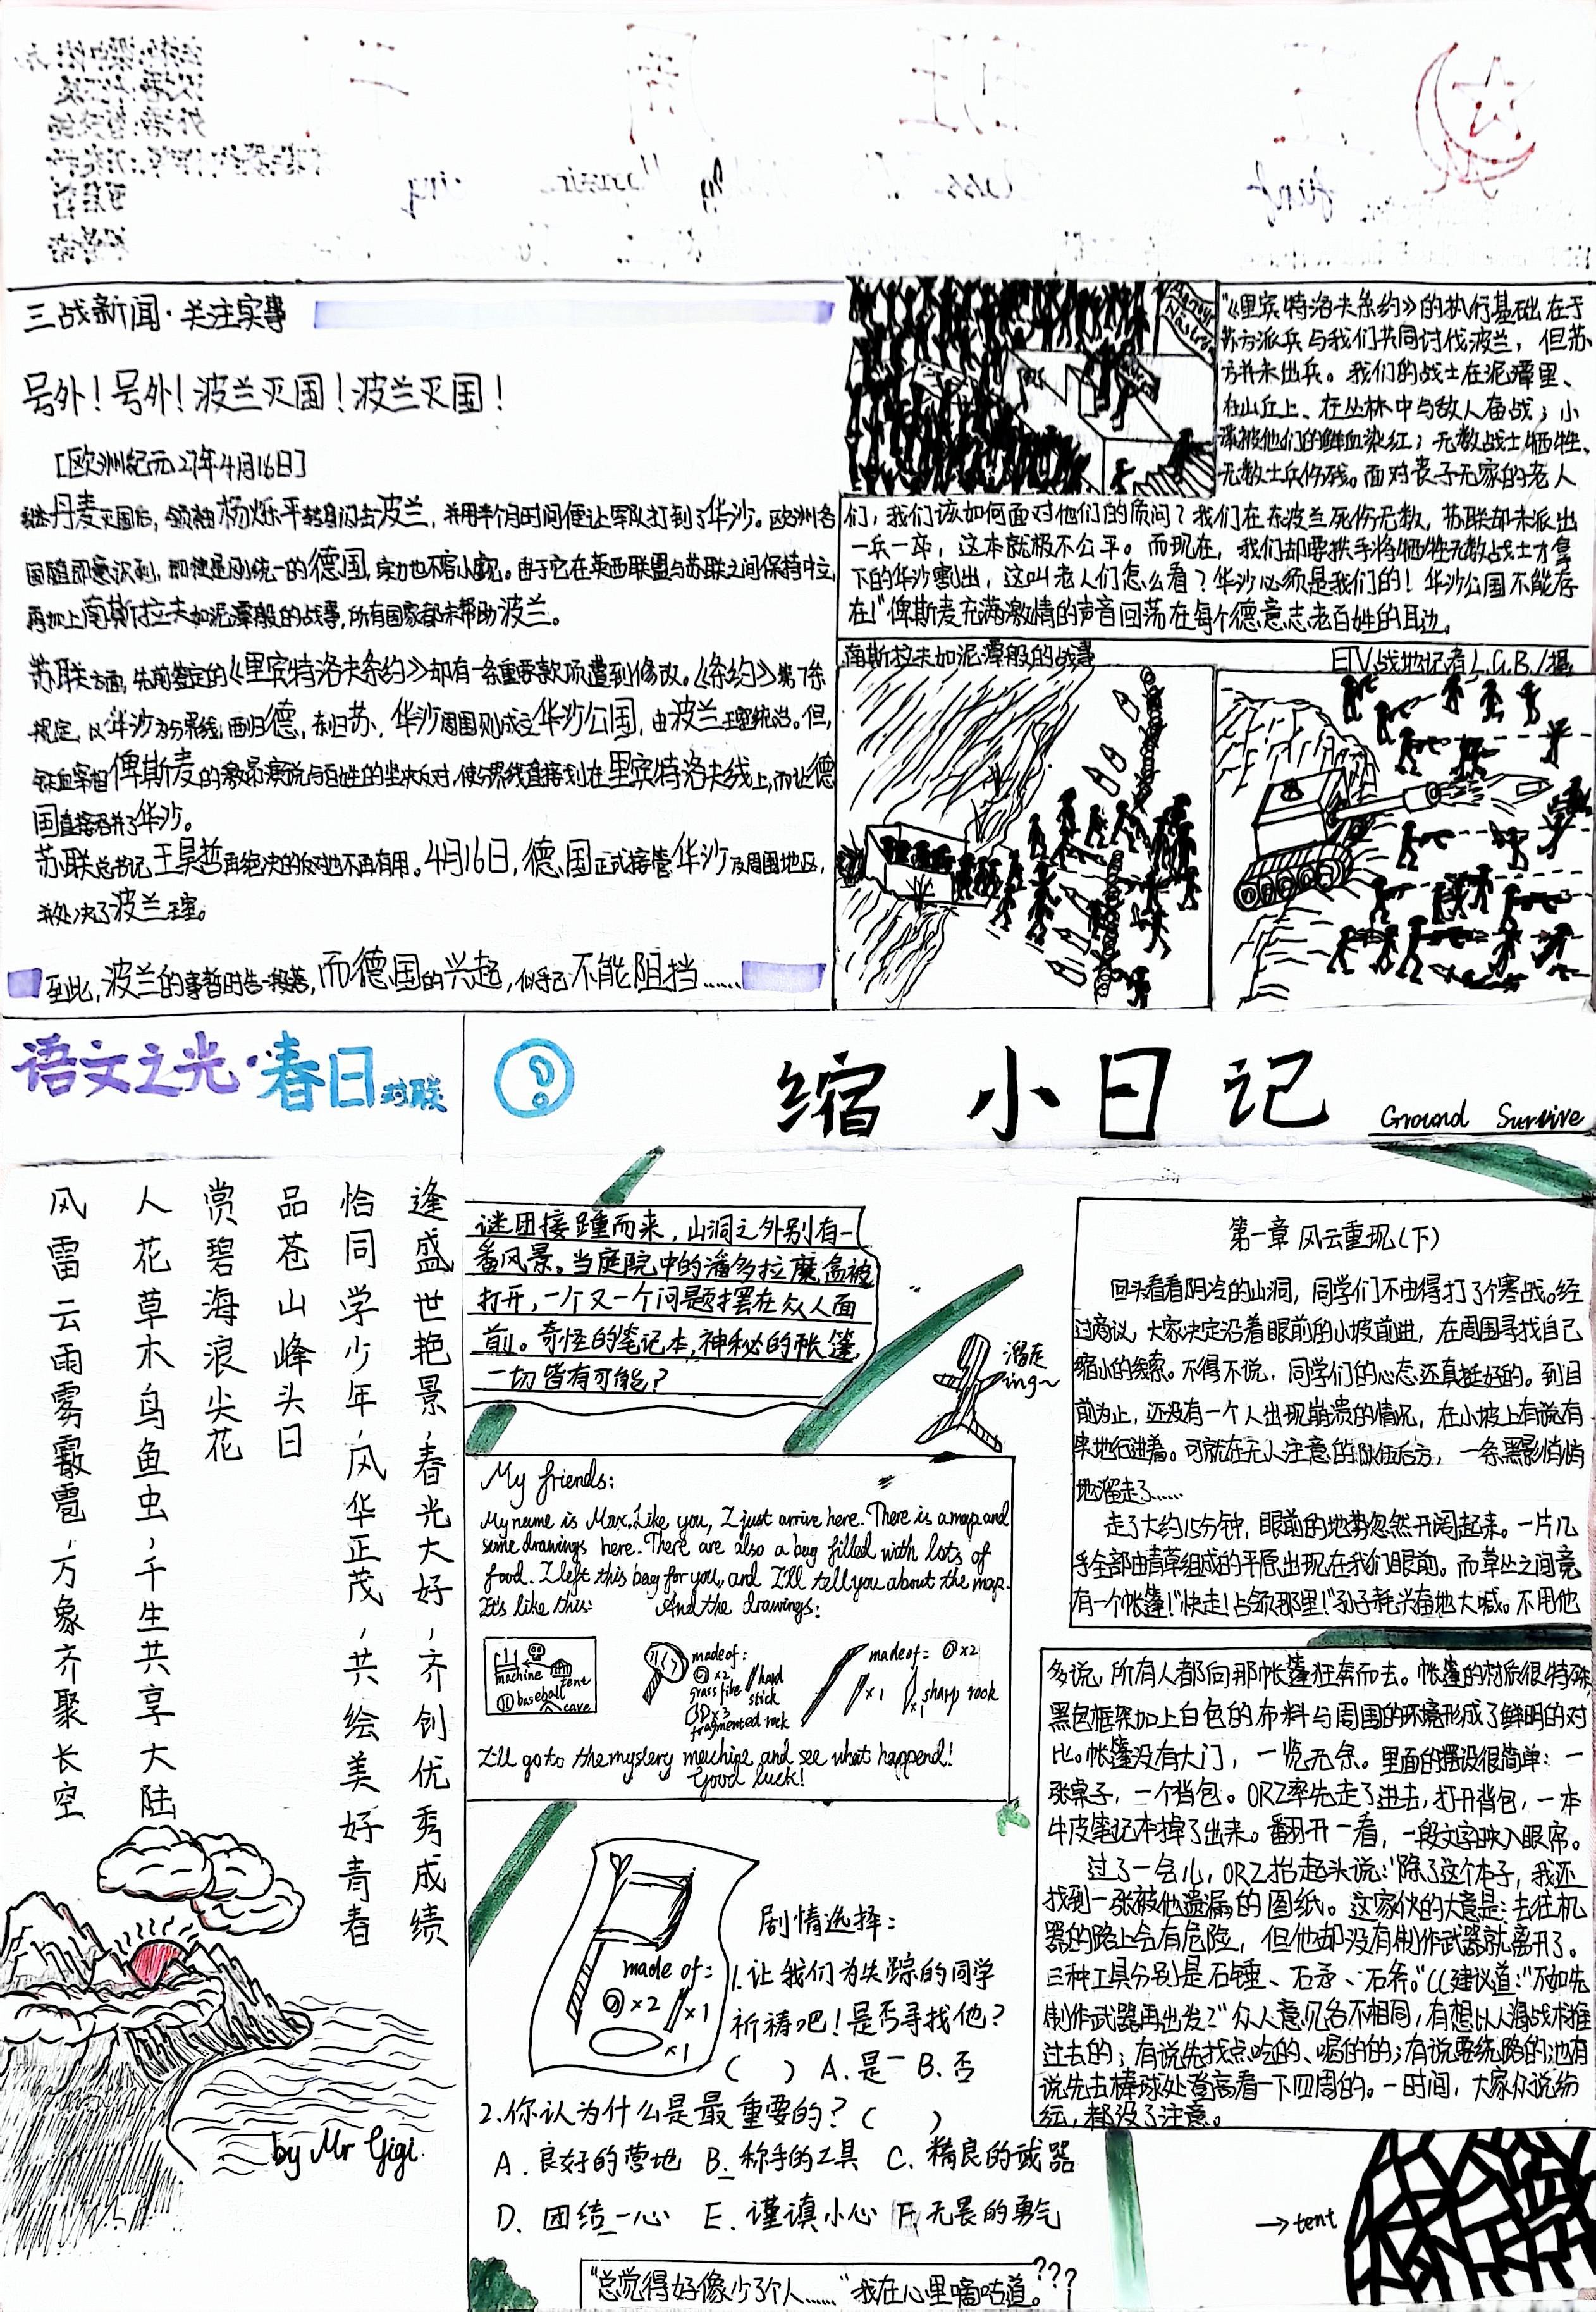 三战新闻·关注实事
号外！号外！波兰灭国！波兰灭国！
[欧洲纪元27年4月16日]
继丹麦灭国后，领袖杨烁平转身闪击波兰，并用半个月时间便让军队打到了华沙。欧洲各
国随即意识到，即使是刚统一的德国，实力也不容小觑。由于它在莱西联盟与苏联之间保持中立，
再加上南斯拉夫如泥潭般的战事，所有国家都未帮助波兰。
苏联方面，先前签定的《里宾特洛夫条约》却有一条重要款项遭到修改。《条约》第7条
规定，以华沙为分界线，西归德，东归苏，华沙周围则成立华沙公国，由波兰王室统治。但，
铁血宰相俾斯麦的激昂演说与百姓的坚决反对，使分界线直接划在里宾特洛夫线上，而让德
国直接吞并了华沙。
苏联总书记王昊哲再绝决的反对也不再有用。4月16日，德国正式接管华沙及周围地区，
并处决了波兰王室。
至此，波兰的事暂时告一段落，而德国的兴起，似乎已不能阻挡……
"《里宾特洛夫条约》的执行基础在于
苏方派兵与我们共同讨伐波兰，但苏
方并未出兵。我们的战士在泥潭里、
在山丘上、在丛林中与敌人奋战；小
溪被他们的鲜血染红；无数战士牺牲、
无数士兵伤残。面对丧子无家的老人
们，我们该如何面对他们的质问？我们在东波兰死伤无数，苏联却未派出
一兵一卒，这本就极不公平。而现在，我们却要拱手将牺牲无数战士才拿
下的华沙割出，这叫老人们怎么看？华沙必须是我们的！华沙公国不能存
在！"俾斯麦充满激情的声音回荡在每个德意志老百姓的耳边。
南斯拉夫如泥潭般的战事
ETV战地记者L.G.B./摄
语文之光·春日对联
逢盛世艳景，春光大好，齐创优秀成绩
恰同学少年，风华正茂，共绘美好青春
品苍山峰头日
赏碧海浪尖花
人花草木鸟鱼虫，千生共享大陆
风雷云雨雾霰雹，万象齐聚长空
by Mr Gigi.
缩小日记
Ground Survive
谜团接踵而来，山洞之外别有一
番风景。当庭院中的潘多拉魔盒被
打开，一个又一个问题摆在众人面
前。奇怪的笔记本，神秘的帐篷，
一切皆有可能？
溜走
ing~
My friends:
My name is Max. Like you, I just arrive here. There is a map and
some drawings here. There are also a bag filled with lots of
food. I left this bag for you, and I'll tell you about the map.
It's like this: And the drawings:
machine
tent
baseball
cave
made of:
×2
grass fibe
hard
stick
×3
fragmented rock
made of: ×2
×1
×1 sharp rock
I'll go to the mystery machine and see what happend!
Good luck!
made of:
×2 ×1
×1
剧情选择：
1.让我们为失踪的同学
祈祷吧！是否寻找他？
（ ） A.是 B.否
2.你认为什么是最重要的？（ ）
A.良好的营地 B.称手的工具 C.精良的武器
D.团结一心 E.谨慎小心 F.无畏的勇气
"总觉得好像少了个人……"我在心里嘀咕道。
???
第一章 风云重现（下）
回头看看阴冷的山洞，同学们不由得打了个寒战。经
过商议，大家决定沿着眼前的小坡前进，在周围寻找自己
缩小的线索。不得不说，同学们的心态还真挺好的。到目
前为止，还没有一个人出现崩溃的情况，在小坡上有说有
笑地行进着。可就在无人注意的队伍后方，一条黑影悄悄
地溜走了……
走了大约15分钟，眼前的地势忽然开阔起来。一片几
乎全部由青草组成的平原出现在我们眼前。而草丛之间竟
有一个帐篷！"快走！占领那里！"孙子耗兴奋地大喊。不用他
多说，所有人都向那帐篷狂奔而去。帐篷的材质很特殊，
黑色框架加上白色的布料与周围的环境形成了鲜明的对
比。帐篷没有大门，一览无余。里面的摆设很简单：一
张桌子，一个背包。ORZ率先走了进去，打开背包，一本
牛皮笔记本掉了出来。翻开一看，一段文字映入眼帘。
过了一会儿，ORZ抬起头说："除了这个本子，我还
找到一张被他遗漏的图纸。这家伙的大意是：去往机
器的路上会有危险，但他却没有制作武器就离开了。
三种工具分别是石锤、石矛、石斧。"CC建议道："不如先
制作武器再出发？"众人意见各不相同，有想以人海战术推
过去的；有说先找点吃的、喝的的；有说要绕路的；也有
说先去棒球处登高看一下四周的。一时间，大家众说纷
纭，都没了主意。
→tent